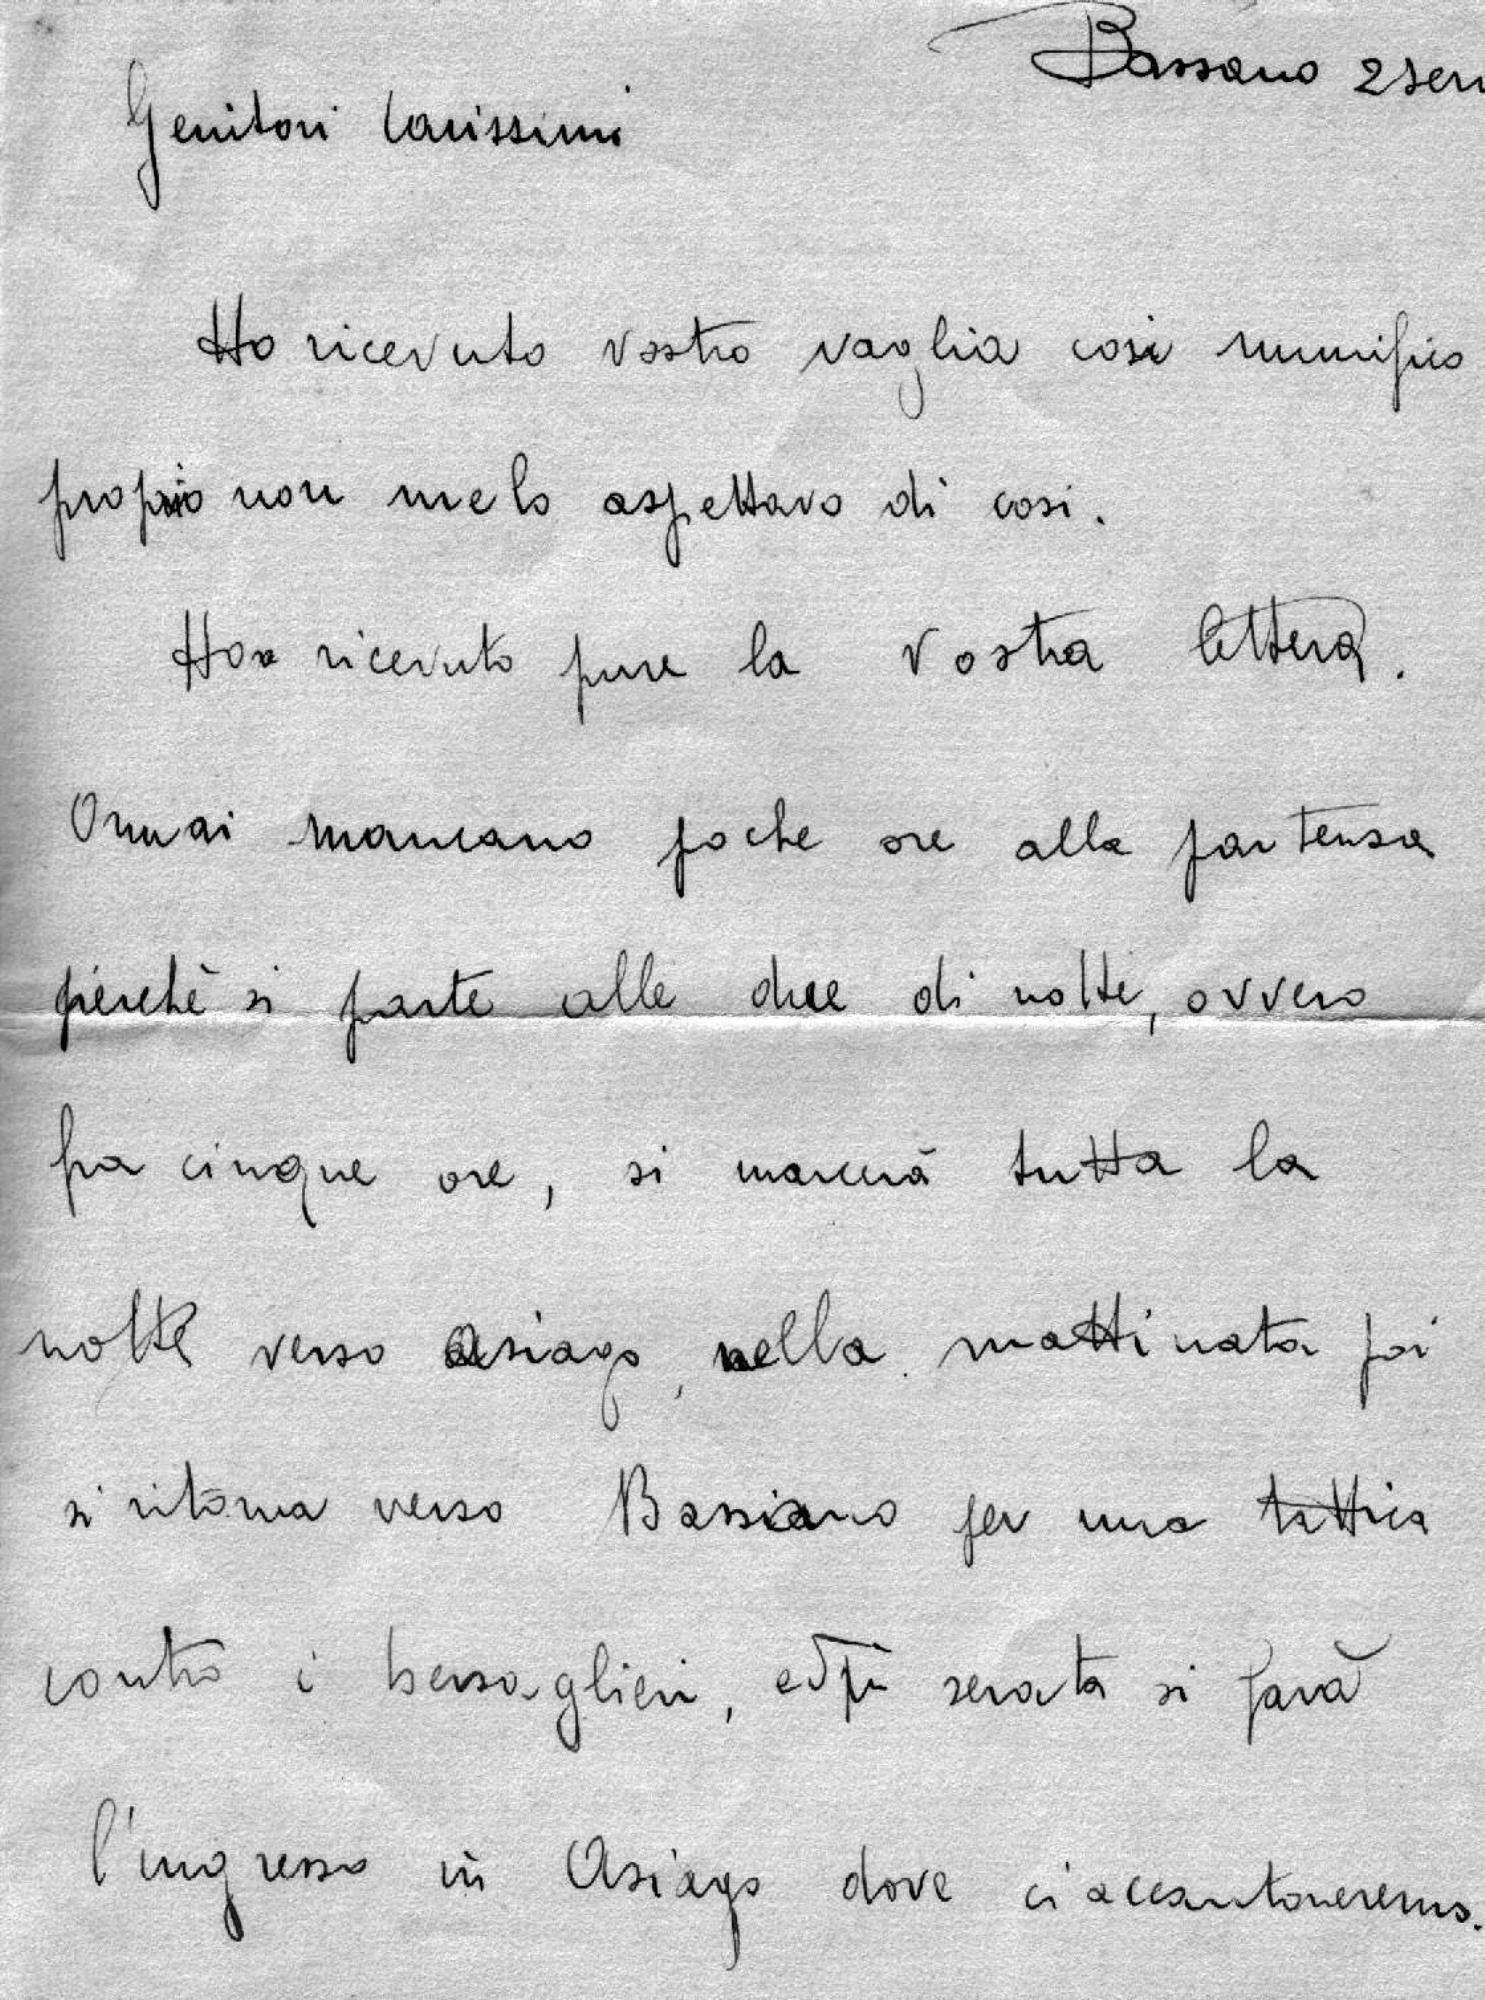 Bassano 2 sera
Genitori Carissimi
Ho ricevuto vostro vaglia cosi munifico
proprio non melo aspettavo di cosi.
Ho ricevuto pure la Vostra lettera.
Ormai mancano poche ore alla partensa
perchè si parte alle due di notte, ovvero
fra cinque ore, si marcerà tutta la
notte verso Asiago, nella mattinata poi
si ritorna verso Bassano per una tattica
contro i bersaglieri, ed in serata si farà
l'ingresso in Asiago dove ci accantoneremo.